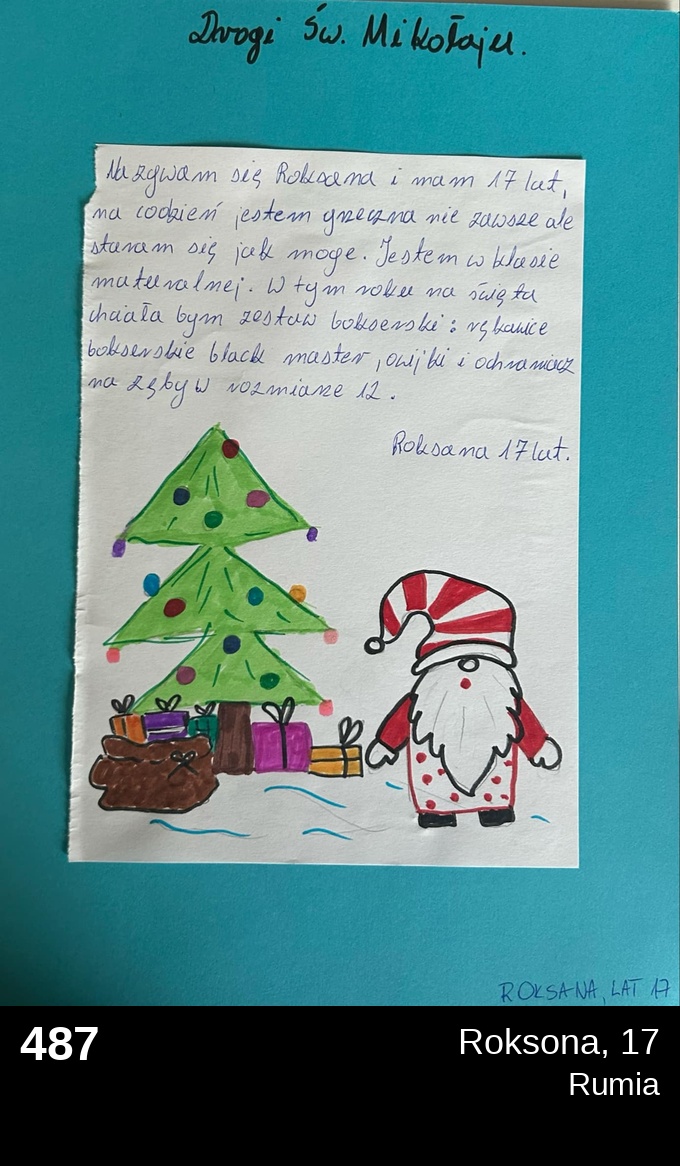 Drogi Św. Mikołaju.
Nazywam się Roksana i mam 17 lat,
na codzień jestem grzeczna nie zawsze ale
staram się jak moge. Jestem w klasie
maturalnej. W tym roku na święta
chciała bym zestaw bokserski: rękawice
bokserskie black master, owijki i ochraniacz
na zęby w rozmiarze 12.
Roksana 17 lat.
ROKSANA, LAT 17
487
Roksona, 17
Rumia